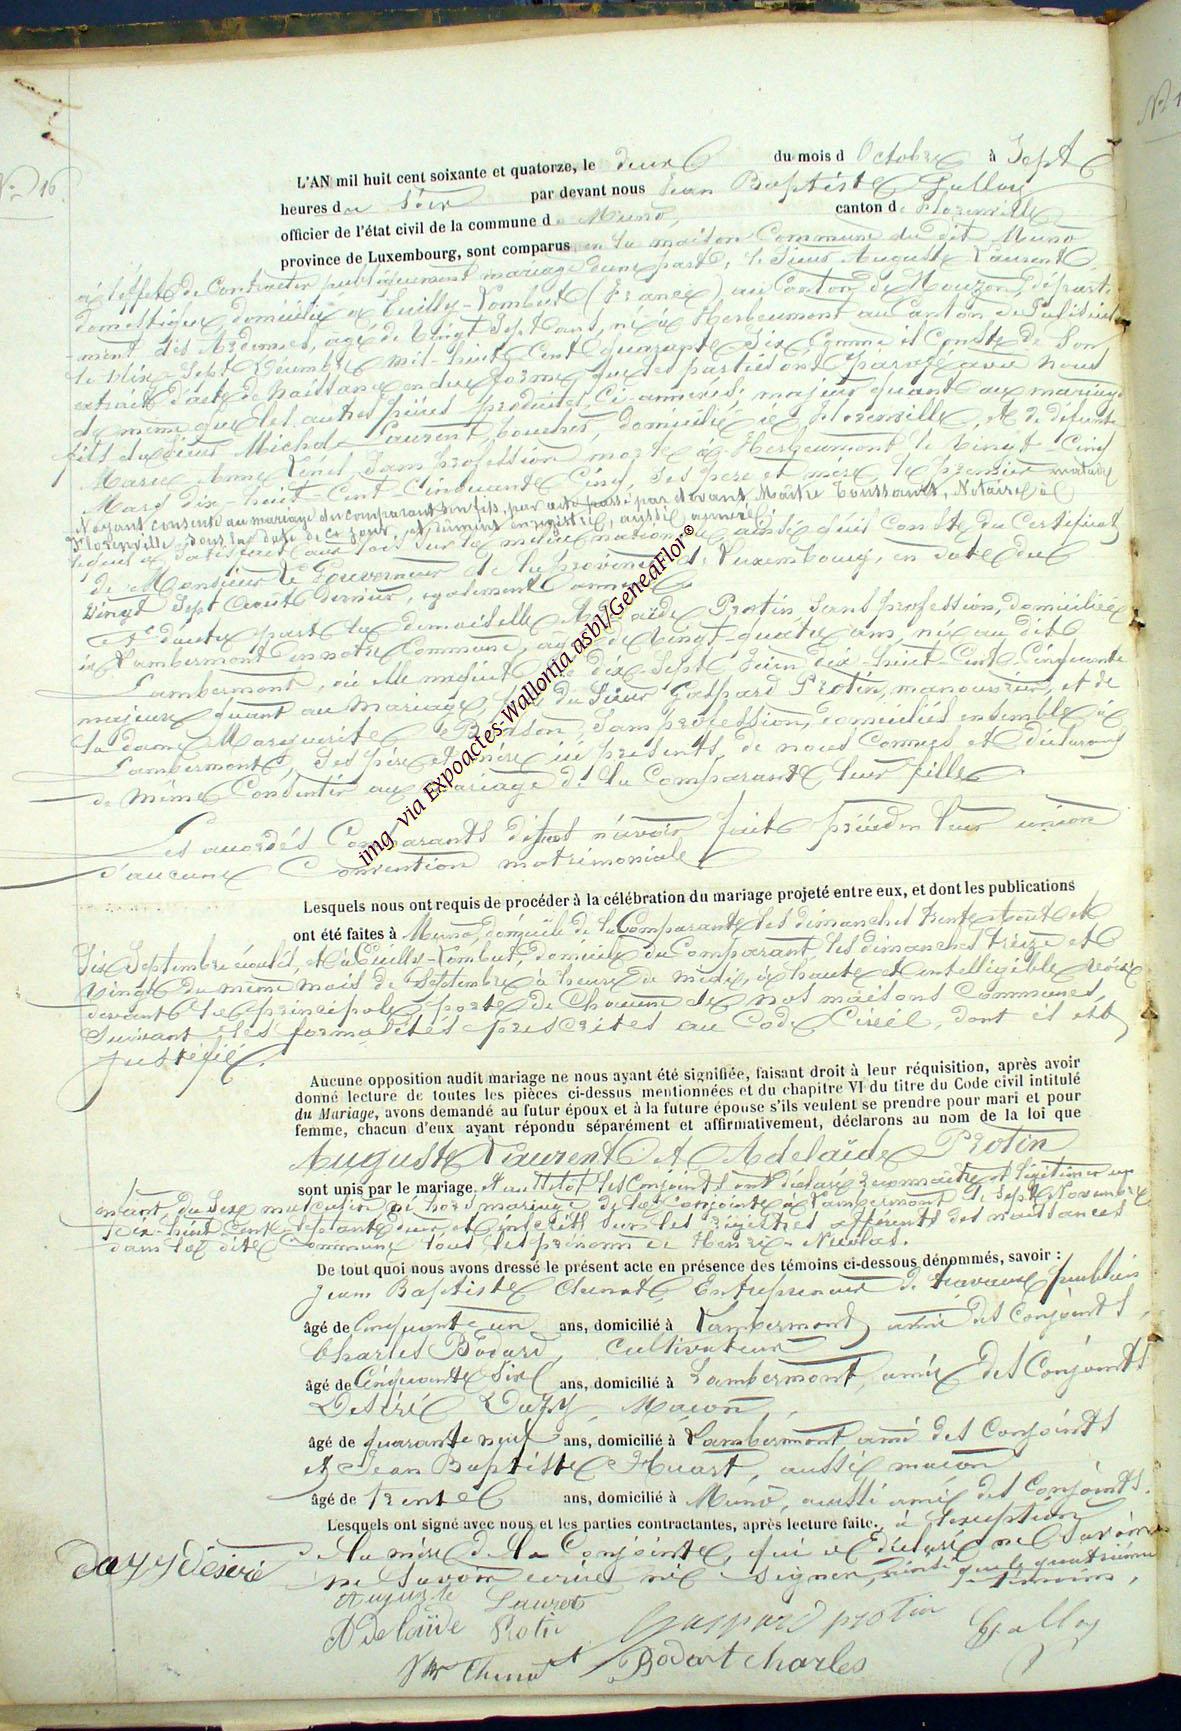 No 16.
L'AN mil huit cent soixante et quatorze, le deux du mois d'Octobre à Sept
heures du Soir par devant nous Jean Baptiste Galloy
officier de l'état civil de la commune de Muno, canton de Florenville
province de Luxembourg, sont comparus en la maison Commune du dit Muno
à l'effet de Contracter publiquement mariage d'une part, le Sieur Auguste Laurent,
domestique, domicilié à Euilly-Lombut (France) au Canton de Mouzon, départe-
-ment des Ardennes, âgé de Vingt Sept ans, né à Herbeumont au Canton de Paliseul
le dix-Sept Décembre mil-huit Cent quarante Six Comme il Conste de Son
extrait d'acte de Naissance en due forme, que les parties ont paraphé avec Nous
de même que les autres pièces produites, Ci-annexées; majeur quant au mariage
fils du Sieur Michel Laurent, domicilié à Florenville, et de défunte
Marie-Anne Sans profession morte à Herbeumont le Vingt-Cinq
Mars dix-huit-Cent-Cinquante Cinq, Ses père et mère, le premier malade
Notaire à
Florenville sous la date de ce jour, et dûment enregistré, aussi annexé;
lequel a satisfait aux lois sur la milice nationale ainsi qu'il Conste du Certificat
de Monsieur le Gouverneur de la province de Luxembourg, en date du
Vingt Sept Août dernier, également annexé.
Et d'autre part la demoiselle Adélaïde Protin, Sans profession, domiciliée
à Lambermont en notre Commune, âgée de Vingt-quatre ans, née au dit
Lambermont, où elle naquit le dix-Sept Juin dix-huit-Cent-Cinquante
majeure quant au mariage, fille du Sieur Gaspard Protin, manouvrier, et de
la dame Marguerite Sans profession, domiciliés ensemble à
Lambermont, Ses père et mère ici présents, de nous Connus et déclarant
de même Consentir au mariage de la Comparante leur fille
Les accordés Comparants disent n'avoir fait précéder leur union
d'aucune Convention matrimoniale
Lesquels nous ont requis de procéder à la célébration du mariage projeté entre eux, et dont les publications
ont été faites à Muno, domicile de la Comparante les dimanches trente Août et
Six Septembre écoulés, et à Euilly-Lombut, domicile du Comparant, les dimanches treize et
Vingt du même mois de Septembre à heure de midi, à haute et intelligible voix
devant la principale porte de Chacune de nos maisons Communes,
Suivant les formalités prescrites au Code Civil, dont il est
justifié.
Aucune opposition audit mariage ne nous ayant été signifiée, faisant droit à leur réquisition, après avoir
donné lecture de toutes les pièces ci-dessus mentionnées et du chapitre VI du titre du Code civil intitulé
du Mariage, avons demandé au futur époux et à la future épouse s'ils veulent se prendre pour mari et pour
femme, chacun d'eux ayant répondu séparément et affirmativement, déclarons au nom de la loi que
Auguste Laurent et Adelaïde Protin
sont unis par le mariage. Aussitôt les Conjoints ont déclaré reconnaître et légitimer un
enfant du Sexe masculin né hors mariage de la Conjointe à Lambermont le Sept Novembre
dix-huit-Cent-Septante deux et inscrit sur les registres afférents des naissances
dans la dite Commune sous les prénoms de Henri-Nicolas.
De tout quoi nous avons dressé le présent acte en présence des témoins ci-dessous dénommés, savoir :
Jean Baptiste Entrepreneur de travaux publics
âgé de Cinquante un ans, domicilié à Lambermont ami des Conjoints
Charles Bodard, Cultivateur
âgé de Cinquante Six ans, domicilié à Lambermont, ami des Conjoints
Désiré Dazy, Maçon,
âgé de quarante neuf ans, domicilié à Lambermont ami des Conjoints
et Jean Baptiste Huart, aussi maçon
âgé de trente ans, domicilié à Muno, aussi ami des Conjoints.
Lesquels ont signé avec nous et les parties contractantes, après lecture faite, à l'exception
de la mère de la Conjointe, qui a déclaré ne Savoir
ne Savoir écrire ni Signer, ainsi que le quatrième
témoins,
dazy désiré
Auguste Lauret
Adelaïde Protin
Gaspard protin
Galloy
Bodart charles
img via Expoactes-Wallonia asbl/GeneaFlor®